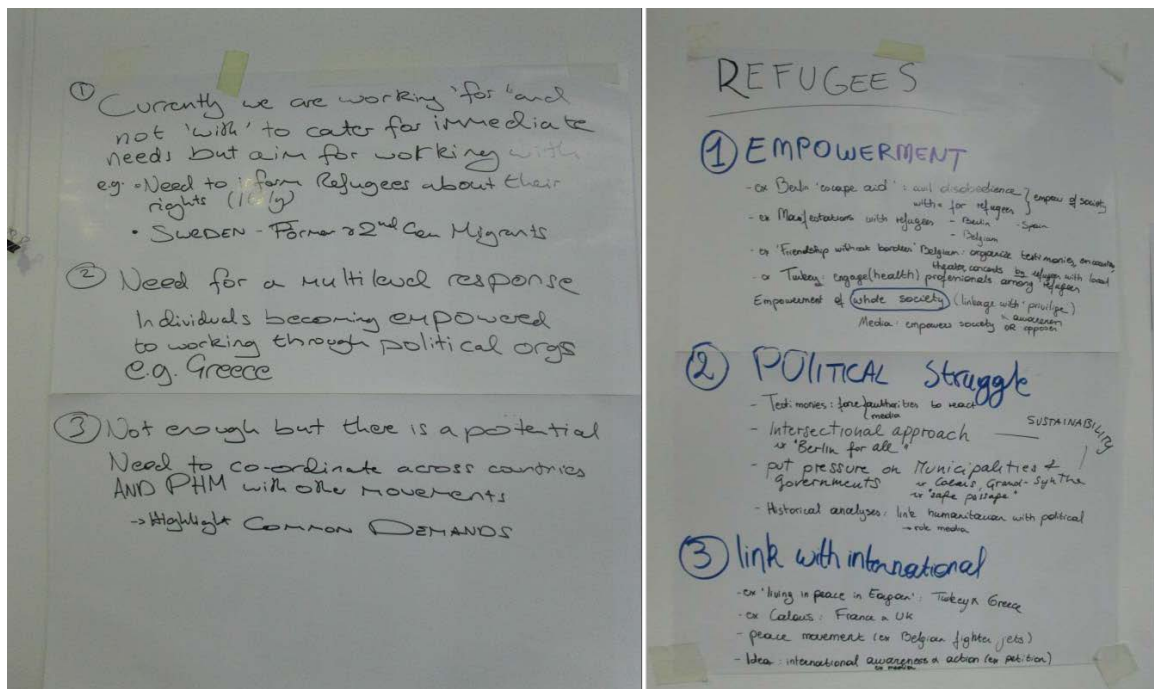 ① Currently we are working 'for' and
not 'with' to cater for immediate
needs but aim for working with
e.g. • Need to inform Refugees about their
rights (Italy)
• SWEDEN - Former & 2nd Gen Migrants
② Need for a multilevel response
Individuals becoming empowered
to working through political orgs
e.g. Greece
③ Not enough but there is a potential
Need to co-ordinate across countries
AND PHM with other movements
→ Highlight COMMON DEMANDS
REFUGEES
① EMPOWERMENT
- ex Berlin 'escape aid' : civil disobedience } empow of society
with & for refugees
- ex Manifestations with refugees - Berlin - Spain
- Belgium
- ex 'Friendship without borders' Belgium : organize testimonies,
theater, concerts by refugees with local
- ex Turkey : engage (health) professionals among refugees
Empowerment of whole society (linkage with 'privilige')
& awareness
Media : empower society OR oppose
② POLITICAL Struggle
- Testimonies : force authorities to react
media
- Intersectional approach
ex "Berlin for all"
SUSTAINABILITY
- put pressure on Municipalities &
governments ex Calais, Grand-Synthe
ex "safe passage"
- Historical analyses : link humanitarian with political
→ role media
③ link with international
- ex 'living in peace in Eagean' : Turkey & Greece
- ex Calais : France & UK
- peace movement (ex Belgian fighter jets)
- Idea : international awareness & action (ex petition)
ex media